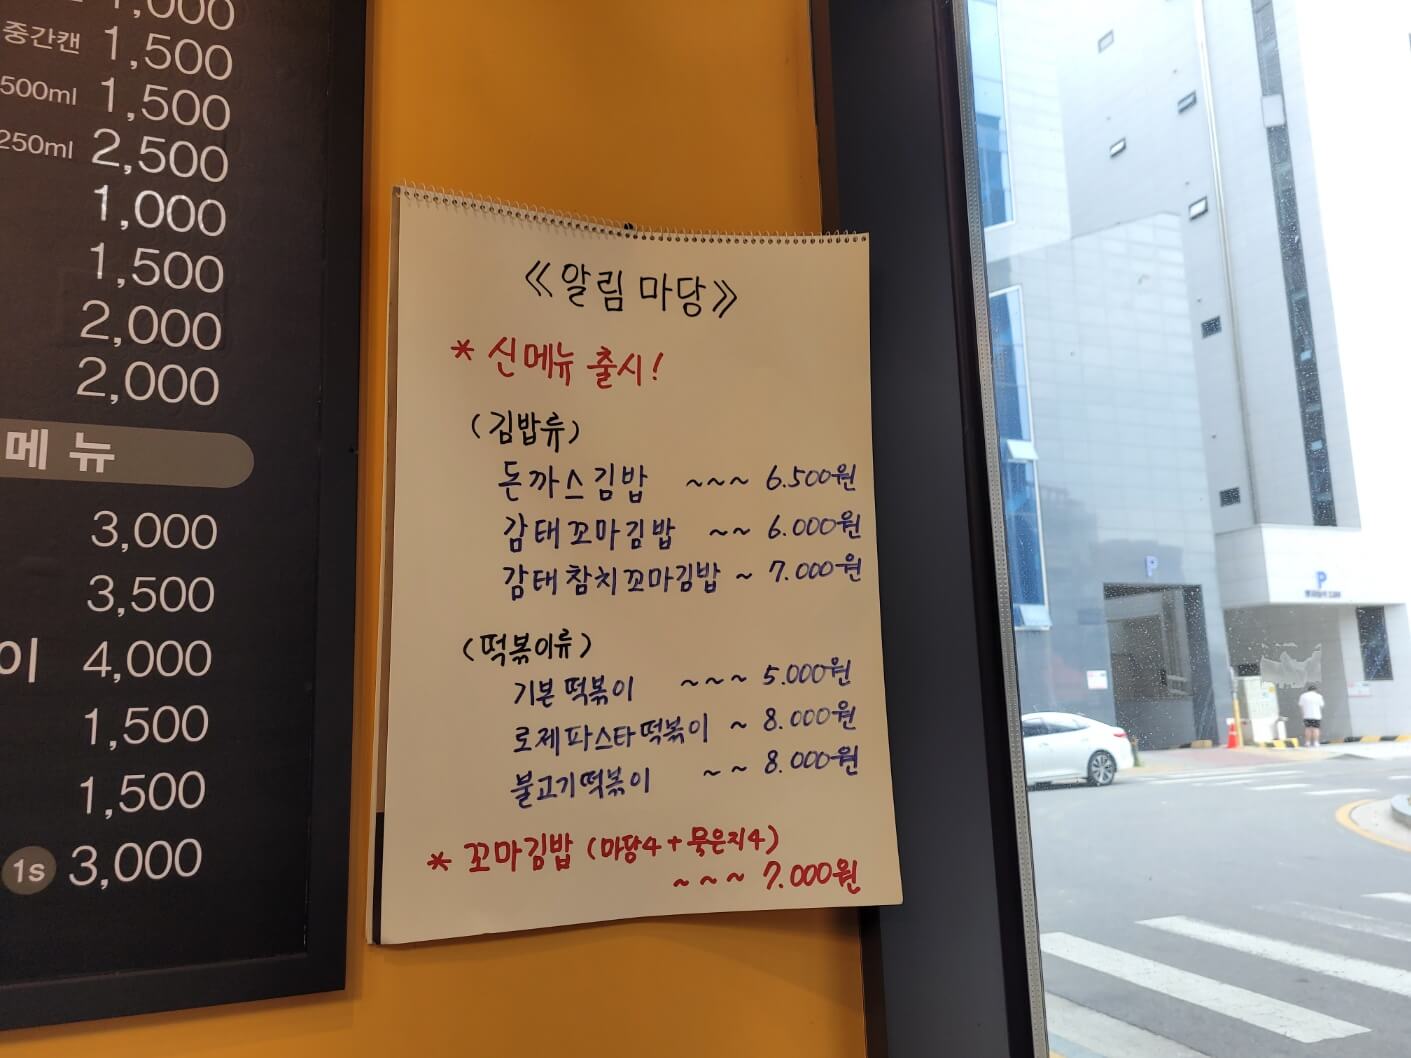 1,000
중간캔 1,500
500ml 1,500
250ml 2,500
1,000
1,500
2,000
2,000
메뉴
3,000
3,500
이 4,000
1,500
1,500
1s 3,000
《알림 마당》
* 신메뉴 출시!
(김밥류)
돈까스김밥 ~~~ 6.500원
감태꼬마김밥 ~~ 6.000원
감태참치꼬마김밥 ~ 7.000원
(떡볶이류)
기본떡볶이 ~~~ 5.000원
로제파스타떡볶이 ~ 8.000원
불고기떡볶이 ~~ 8.000원
* 꼬마김밥 (마당4+묵은지4)
~~~ 7.000원
P
P